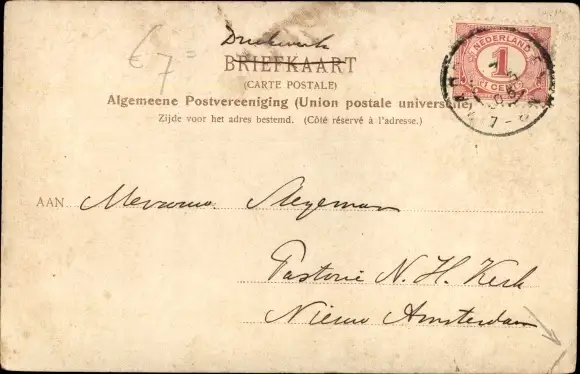 € 7=
Drukwerk
BRIEFKAART
(CARTE POSTALE)
Algemeene Postvereeniging (Union postale universelle)
Zijde voor het adres bestemd. (Côté réservé à l'adresse.)
NEDERLAND
1
CENT
AAN Mevrouw Stegeman
Pastorie N. H. Kerk
Nieuw Amsterdam